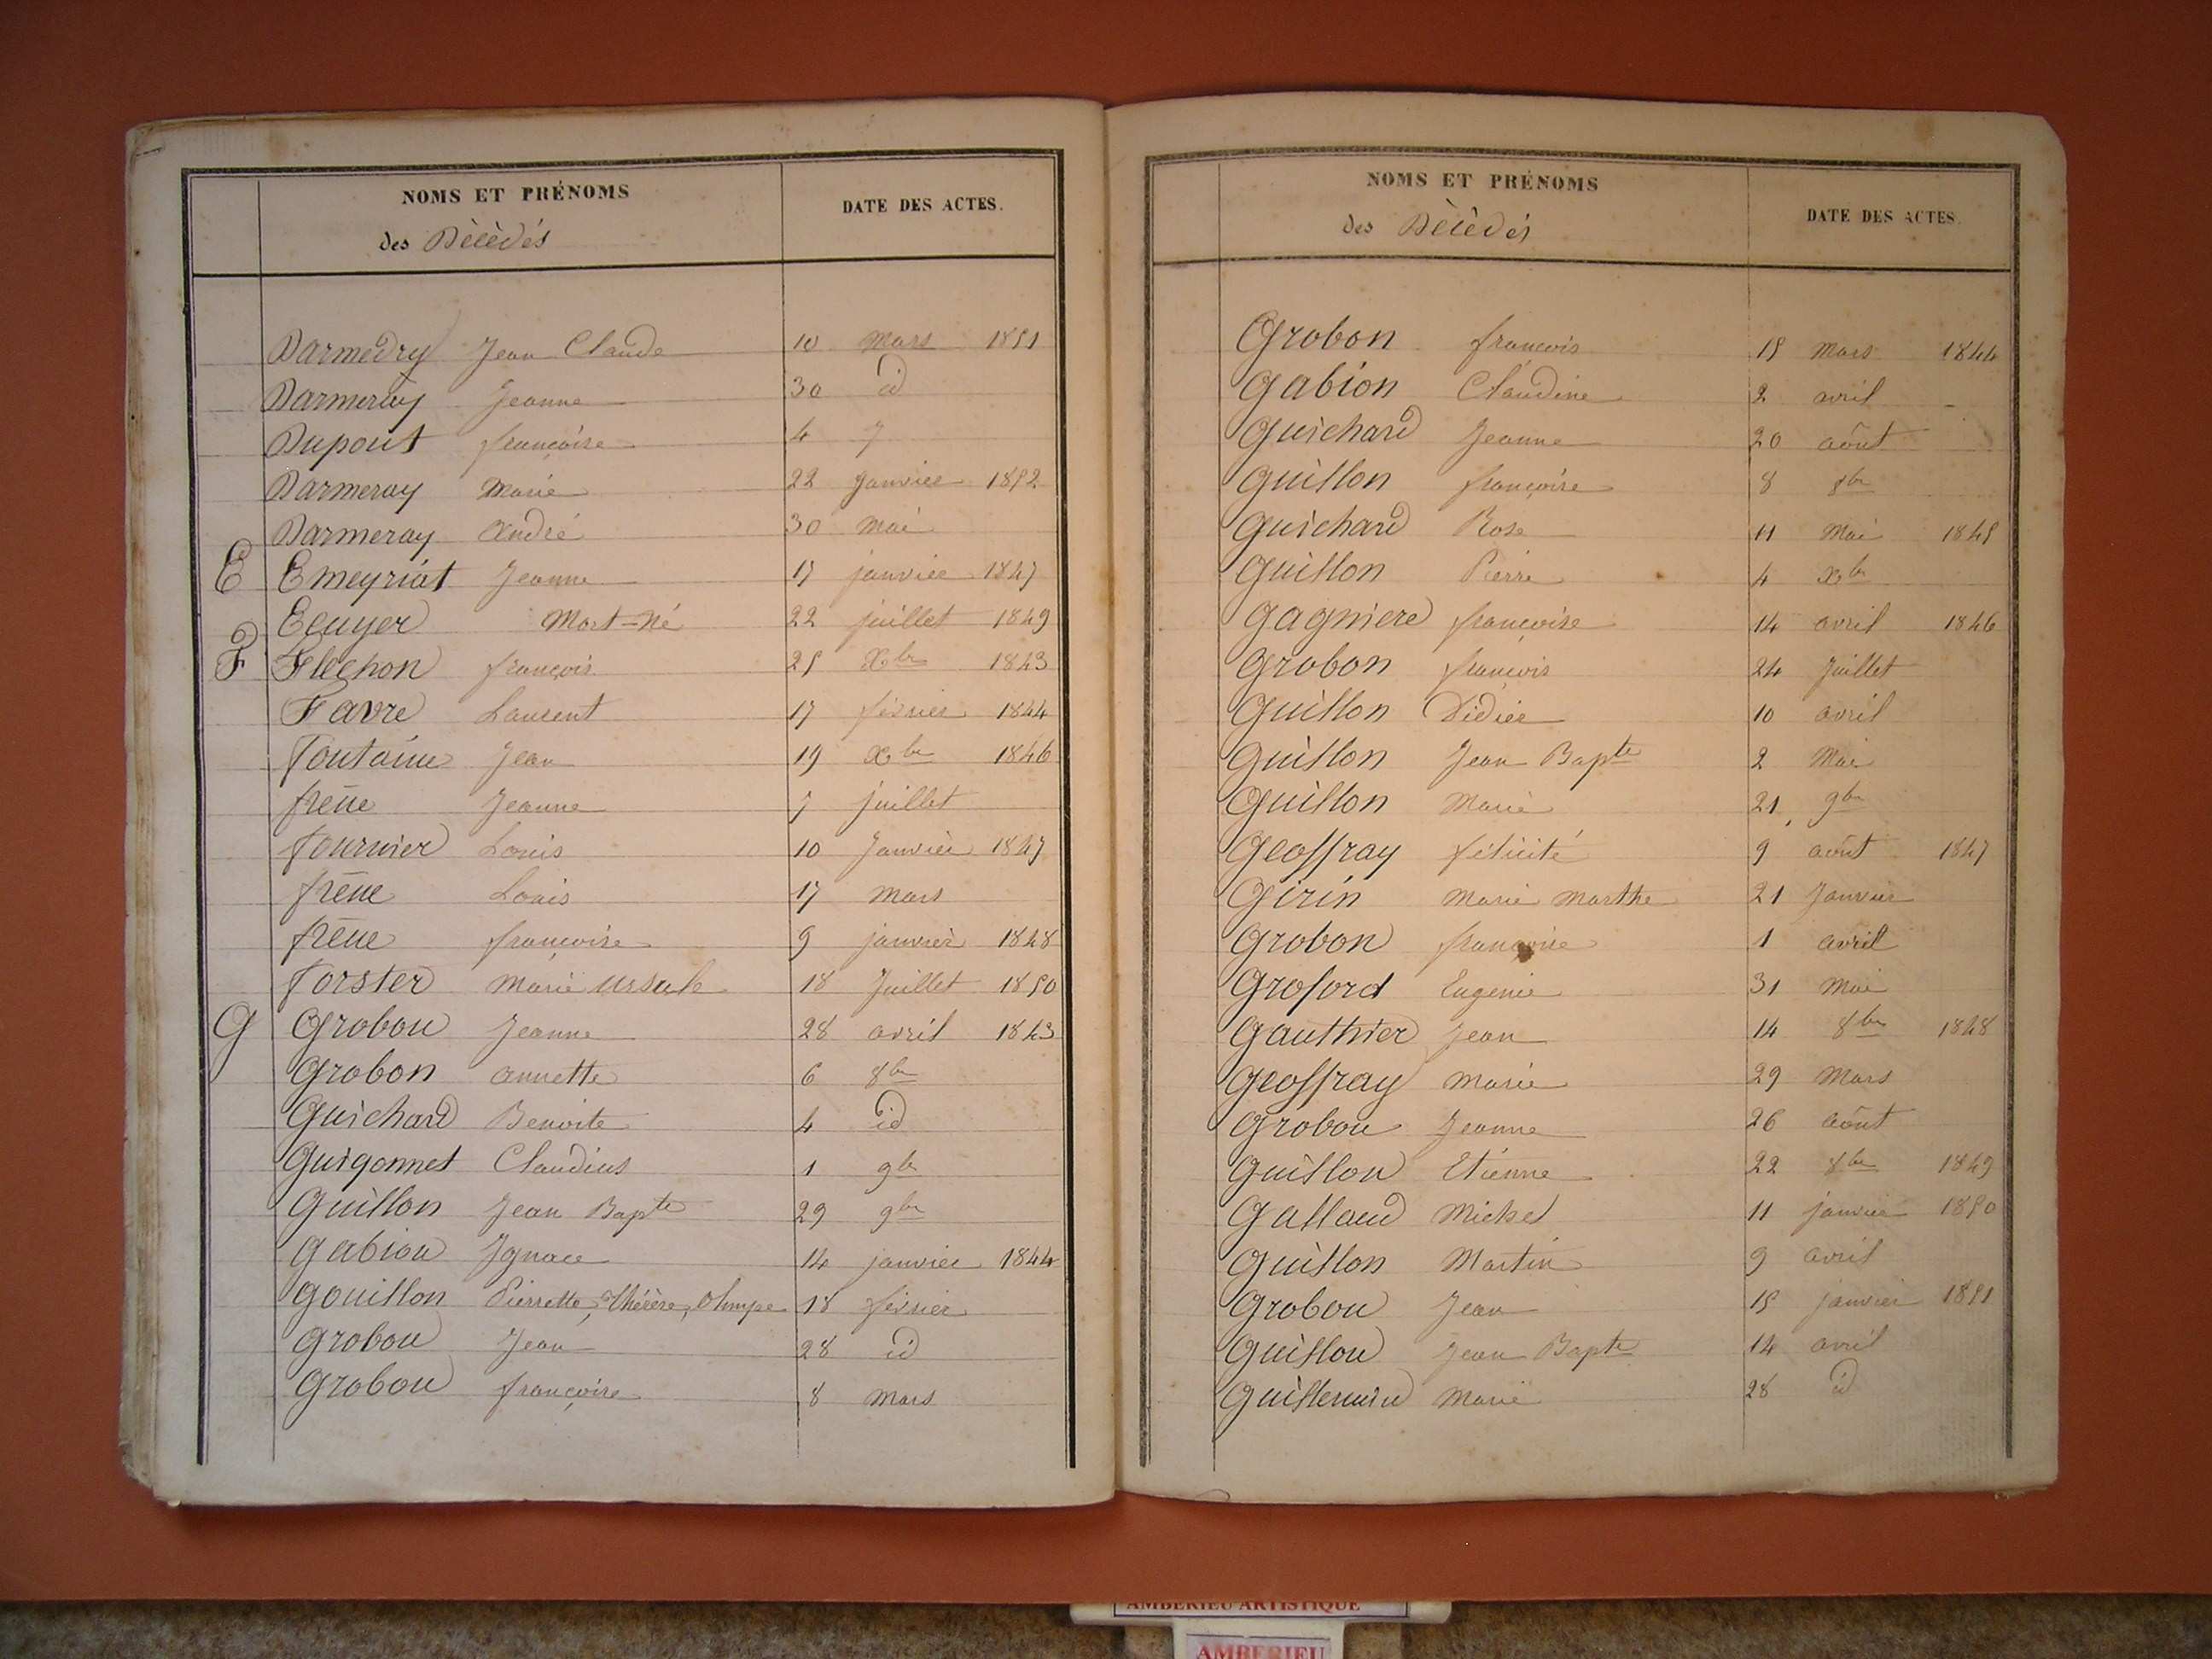 NOMS ET PRÉNOMS
des Décédés
DATE DES ACTES.
Darmedry Jean Claude 10 Mars 1851
Darmeray Jeanne 30 id
Dupont françoise 4 7
Darmeray Marie 22 Janvier 1852
Darmeray André 30 Mai
E Emeyriat Jeanne 17 janvier 1847
Ecuyer Mort-Né 22 juillet 1849
F Flechon françois 25 Xbre 1843
Favre Laurent 17 février 1844
Fontaine Jean 19 Xbre 1846
frêne Jeanne 7 juillet
fournier Louis 10 Janvier 1847
frêne Louis 17 Mars
frêne françoise 9 janvier 1848
forster Marie Ursule 18 Juillet 1850
G Grobon Jeanne 28 avril 1843
Grobon annette 6 8bre
Guichard Benoite 4 id
Guigonnet Claudius 1 9bre
Guillon Jean Bapte 29 9bre
Gabion Ignace 14 janvier 1844
Gouillon Pierrette, Thérèse, Olimpe 18 février
Grobon Jean 28 id
Grobon françoise 8 Mars
NOMS ET PRÉNOMS
des Décédés
DATE DES ACTES
Grobon françois 15 Mars 1844
Gabion Claudine 2 avril
Guichard Jeanne 20 août
Guillon françoise 8 8bre
Guichard Rose 11 Mai 1845
Guillon Pierre 4 Xbre
Gagniere françoise 14 avril 1846
Grobon françois 24 Juillet
Guillon Didier 10 avril
Guillon Jean Bapte 2 Mai
Guillon Marie 21 9bre
Geoffray félicité 9 août 1847
Girin Marie Marthe 21 Janvier
Grobon françoise 1 avril
Groford Eugenie 31 Mai
Gauthier Jean 14 8bre 1848
Geoffray Marie 29 Mars
Grobon Jeanne 26 août
Guillon Etienne 22 8bre 1849
Galland Michel 11 janvier 1850
Guillon Martin 9 avril
Grobon Jean 15 janvier 1851
Guillon Jean Bapte 14 avril
Guillemin Marie 28 id
AMBERIEU ARTISTIQUE
AMBERIEU